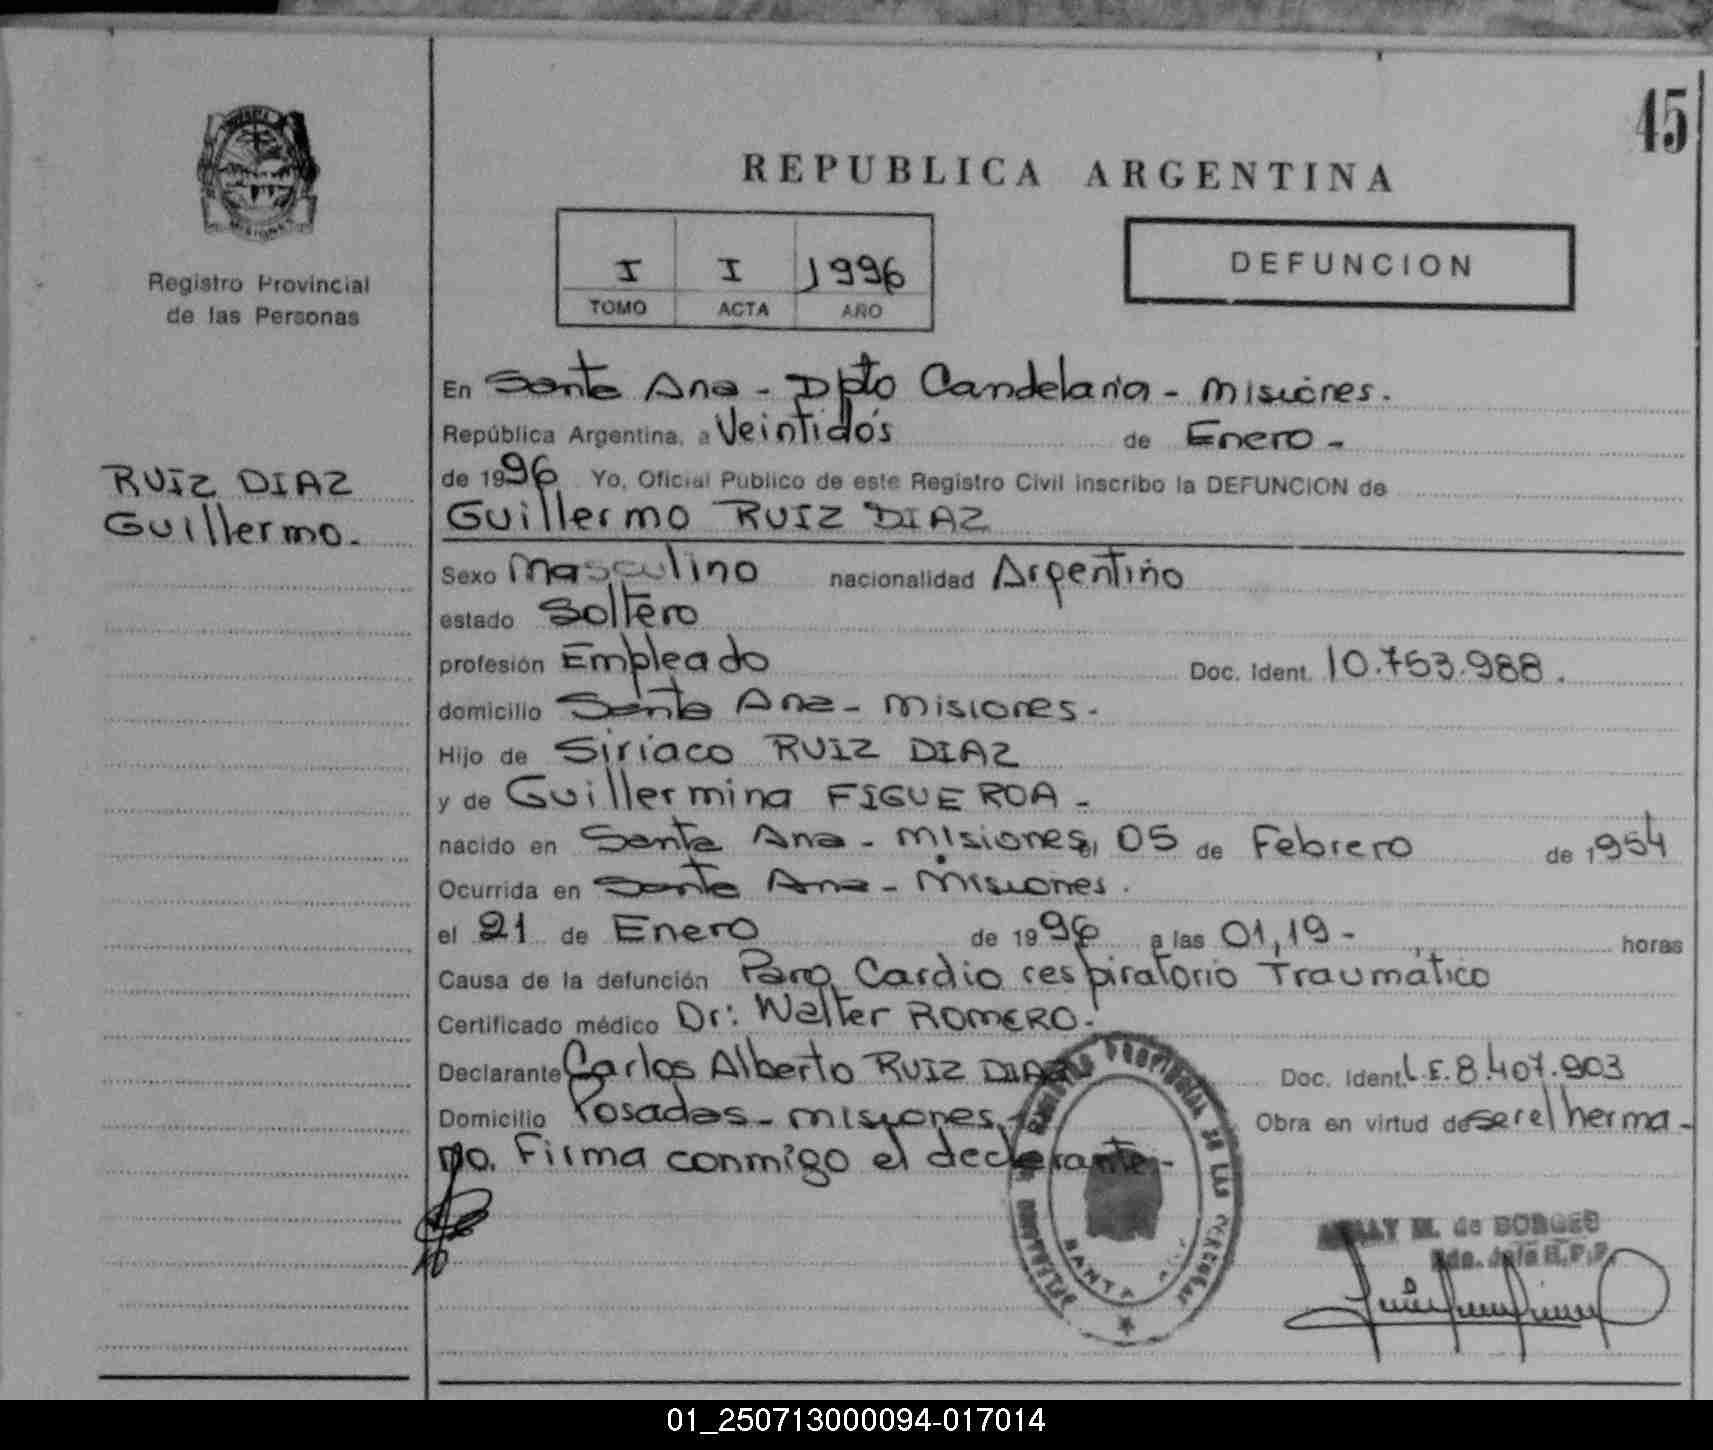 45
REPUBLICA ARGENTINA
I I 1996
TOMO ACTA AÑO
DEFUNCION
MISIONES
Registro Provincial
de las Personas
RUIZ DIAZ
Guillermo.
En Santa Ana - Dpto Candelaria - Misiones.
República Argentina, a Veintidós de Enero -
de 1996 Yo, Oficial Publico de este Registro Civil inscribo la DEFUNCION de
Guillermo RUIZ DIAZ
Sexo Masculino nacionalidad Argentino
estado Soltero
profesión Empleado Doc. Ident. 10.753.988.
domicilio Santa Ana - Misiones.
Hijo de Siriaco RUIZ DIAZ
y de Guillermina FIGUEROA -
nacido en Santa Ana - Misiones, el 05 de Febrero de 1954
Ocurrida en Santa Ana - Misiones.
el 21 de Enero de 1996 a las 01,19 - horas
Causa de la defunción Paro Cardio respiratorio Traumático
Certificado médico Dr: Walter ROMERO.
Declarante Carlos Alberto RUIZ DIAZ Doc. Ident. L.E. 8.407.903
Domicilio Posadas - Misiones. Obra en virtud de ser el herma-
no. Firma conmigo el declarante -
PROVINCIAL DE LAS PERSONAS
SANTA
M. de BORGES
01_250713000094-017014